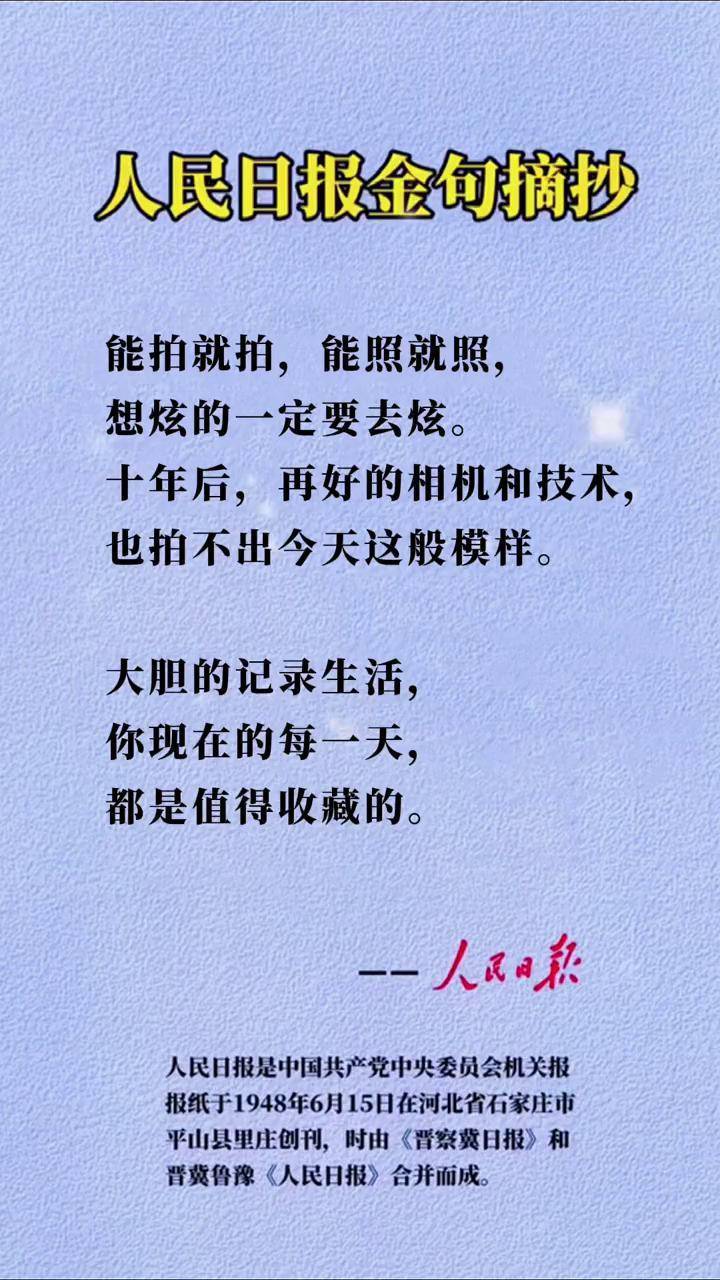 人民日报金句摘抄
能拍就拍，能照就照，
想炫的一定要去炫。
十年后，再好的相机和技术，
也拍不出今天这般模样。
大胆的记录生活，
你现在的每一天，
都是值得收藏的。
——人民日报
人民日报是中国共产党中央委员会机关报
报纸于1948年6月15日在河北省石家庄市
平山县里庄创刊，时由《晋察冀日报》和
晋冀鲁豫《人民日报》合并而成。